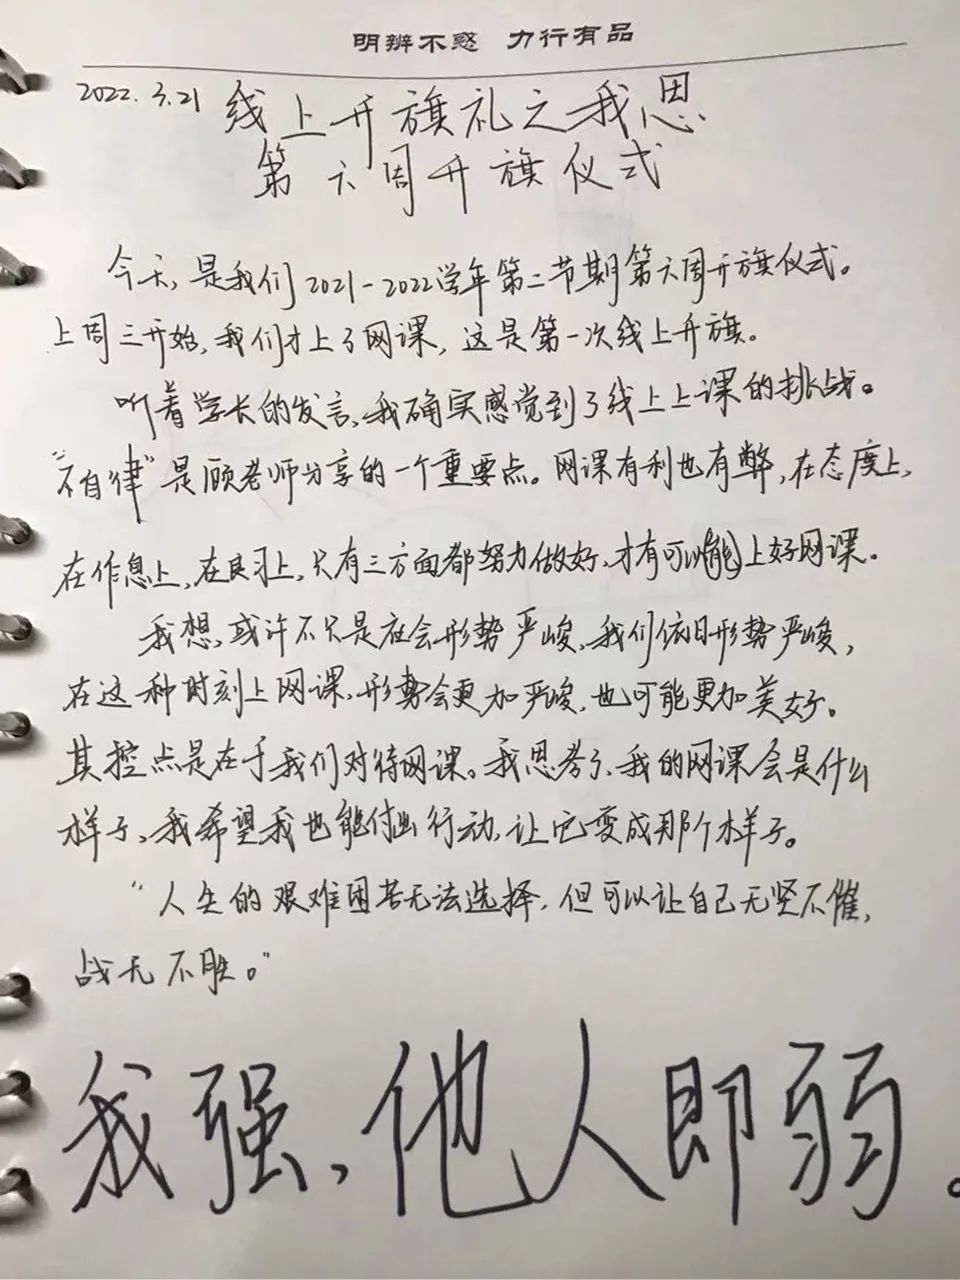 明辨不惑 力行有品
2022.3.21 线上升旗礼之我思
第六周升旗仪式
今天,是我们2021-2022学年第二节期第六周升旗仪式。
上周三开始,我们才上了网课,这是第一次线上升旗。
听着学长的发言,我确实感觉到了线上上课的挑战。
"自律"是顾老师分享的一个重要点。网课有利也有弊,在态度上,
在作息上,在良习上,只有三方面都努力做好,才有可以能上好网课。
我想,或许不只是社会形势严峻,我们依旧形势严峻,
在这种时刻上网课,形势会更加严峻,也可能更加美好。
其控点是在于我们对待网课。我思考了,我的网课会是什么
样子,我希望我也能付出行动,让它变成那个样子。
"人生的艰难困苦无法选择,但可以让自己无坚不催,
战无不胜。"
我强,他人即弱。